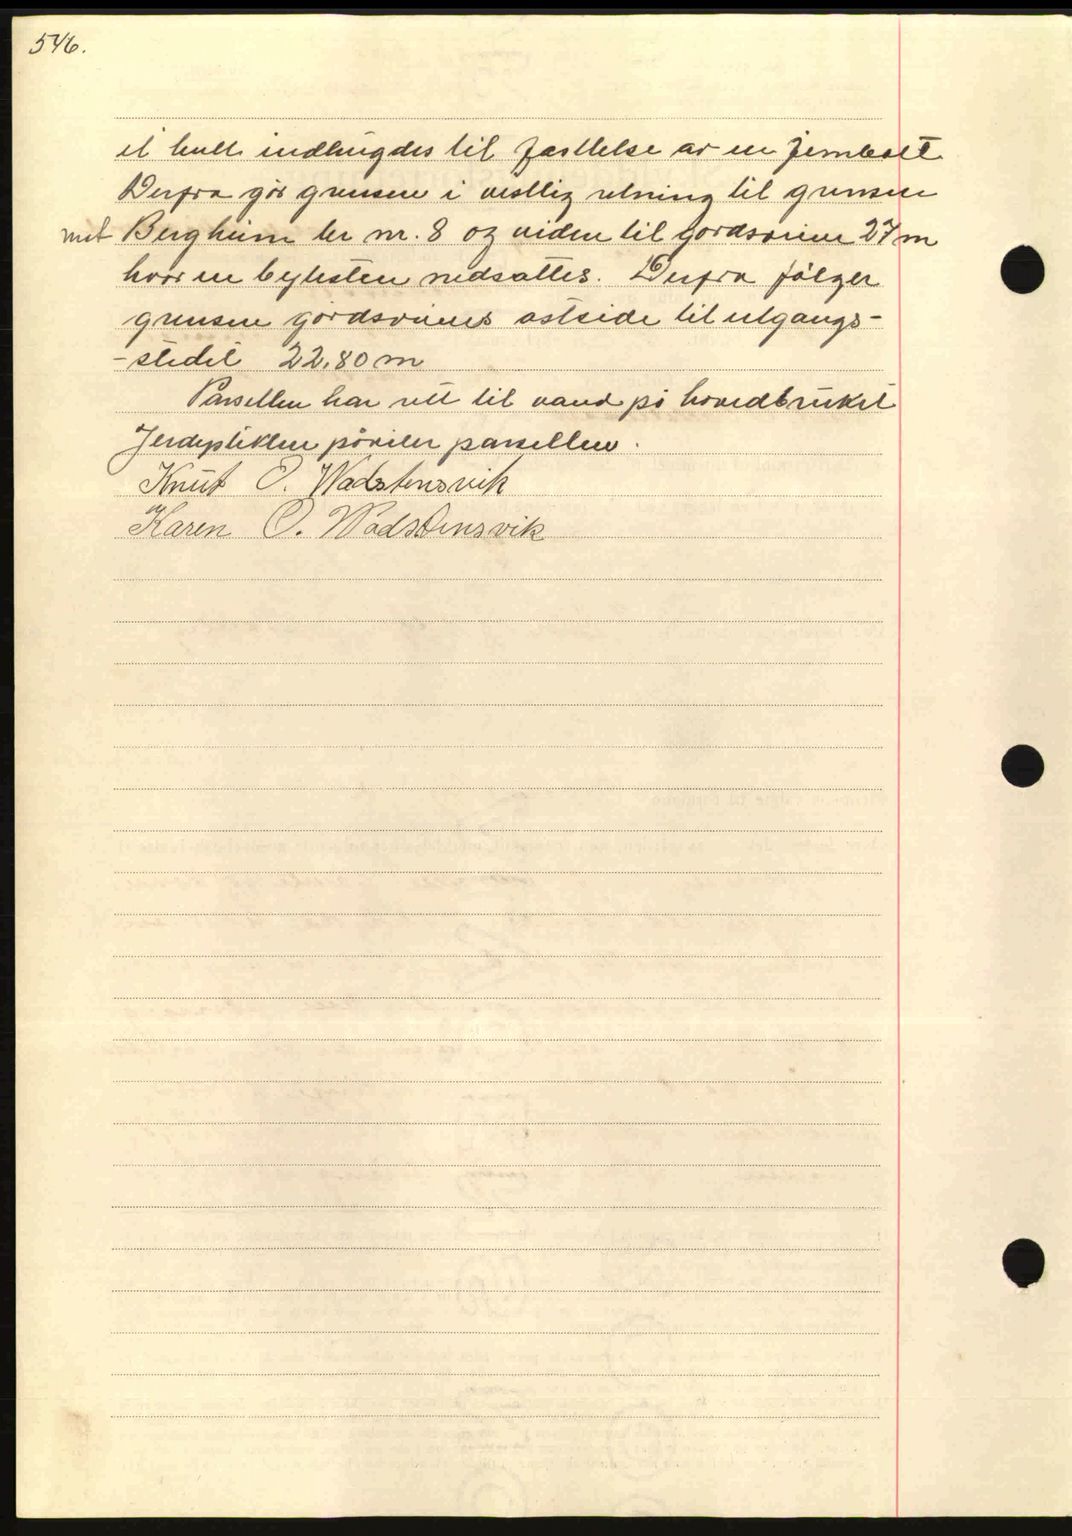 546.
et hull indhugdes til festelse av en jernbolt
Derfra går grensen i vestlig retning til grensen
mot Bergheim br nr. 8 og viden til gårdsveien 27 m
hvor en bytesten nedsattes. Derfra følger
grensen gårdsveiens østside til utgangs-
-stedet 22,80 m
Parsellen har rett til vand på hovedbruket
Jerdeplikten påviler parsellen.
Knut O. Wadstensvik
Karen O. Wadstensvik